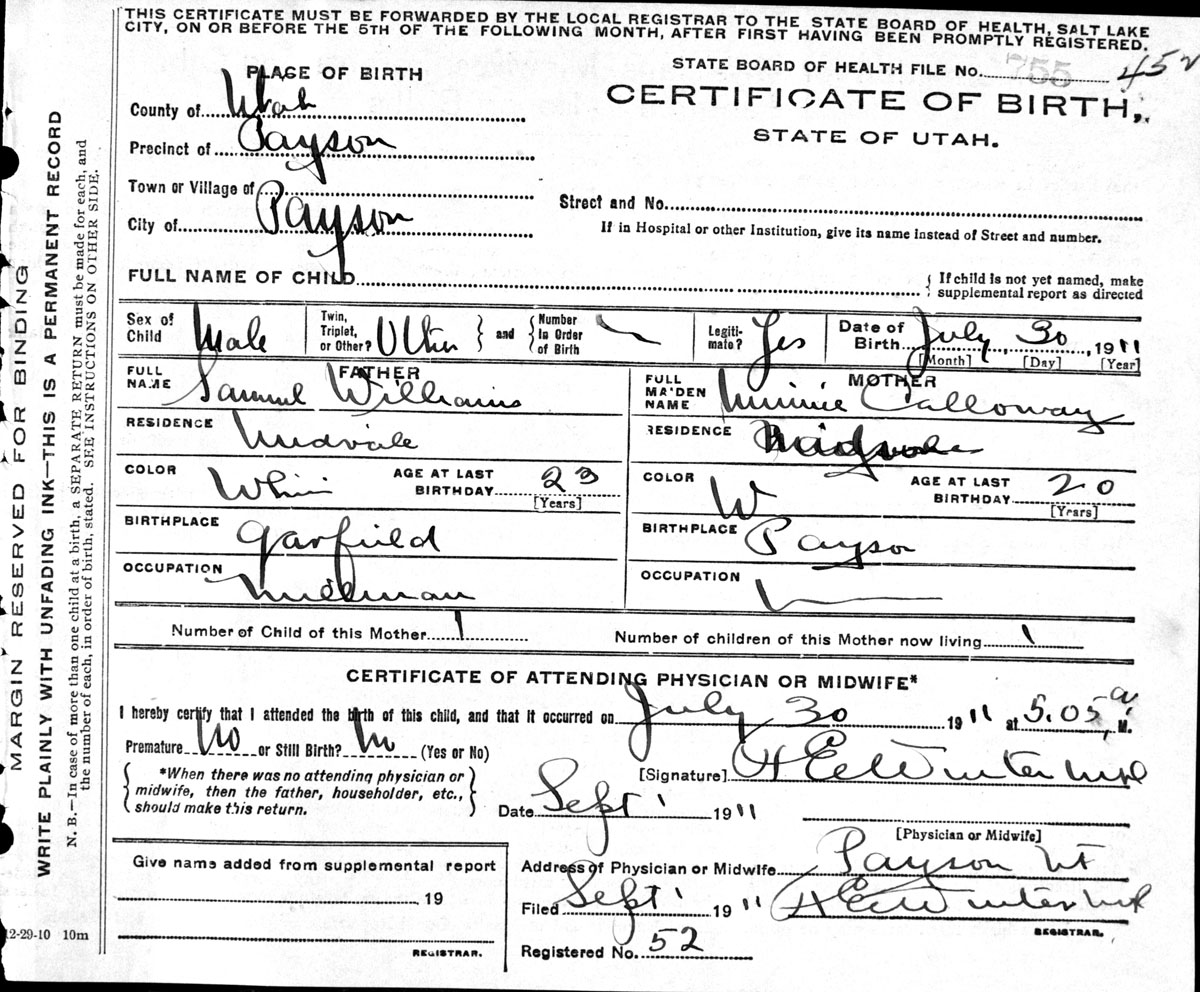 THIS CERTIFICATE MUST BE FORWARDED BY THE LOCAL REGISTRAR TO THE STATE BOARD OF HEALTH, SALT LAKE
CITY, ON OR BEFORE THE 5TH OF THE FOLLOWING MONTH, AFTER FIRST HAVING BEEN PROMPTLY REGISTERED.
PLACE OF BIRTH
STATE BOARD OF HEALTH FILE No. 755 452
County of Utah
CERTIFICATE OF BIRTH,
Precinct of Payson
STATE OF UTAH.
Town or Village of
Street and No.
City of Payson
If in Hospital or other Institution, give its name instead of Street and number.
FULL NAME OF CHILD
{ If child is not yet named, make
supplemental report as directed
Sex of Child Male
Twin, Triplet, or Other? Other } and { Number in Order of Birth
Legiti-mate? Yes
Date of Birth July 30, 1911
[Month] [Day] [Year]
FATHER
FULL NAME Samuel Williams
MOTHER
FULL MAIDEN NAME Minnie Calloway
RESIDENCE Midvale
RESIDENCE Midvale
COLOR White
AGE AT LAST BIRTHDAY 23
[Years]
COLOR W
AGE AT LAST BIRTHDAY 20
[Years]
BIRTHPLACE Garfield
BIRTHPLACE Payson
OCCUPATION Millman
OCCUPATION
Number of Child of this Mother 1
Number of children of this Mother now living 1
CERTIFICATE OF ATTENDING PHYSICIAN OR MIDWIFE*
I hereby certify that I attended the birth of this child, and that it occurred on July 30 1911 at 5.05 a M.
Premature No or Still Birth? No (Yes or No)
[Signature] Winter M.D.
{ *When there was no attending physician or
midwife, then the father, householder, etc.,
should make this return. }
Date Sept 1 1911
[Physician or Midwife]
Give name added from supplemental report
Address of Physician or Midwife Payson Ut
19
Filed Sept 1 1911 Winter
REGISTRAR.
REGISTRAR.
Registered No. 52
12-29-10 10m
MARGIN RESERVED FOR BINDING
WRITE PLAINLY WITH UNFADING INK—THIS IS A PERMANENT RECORD
N. B.—In case of more than one child at a birth, a SEPARATE RETURN must be made for each, and
the number of each, in order of birth, stated. SEE INSTRUCTIONS ON OTHER SIDE.